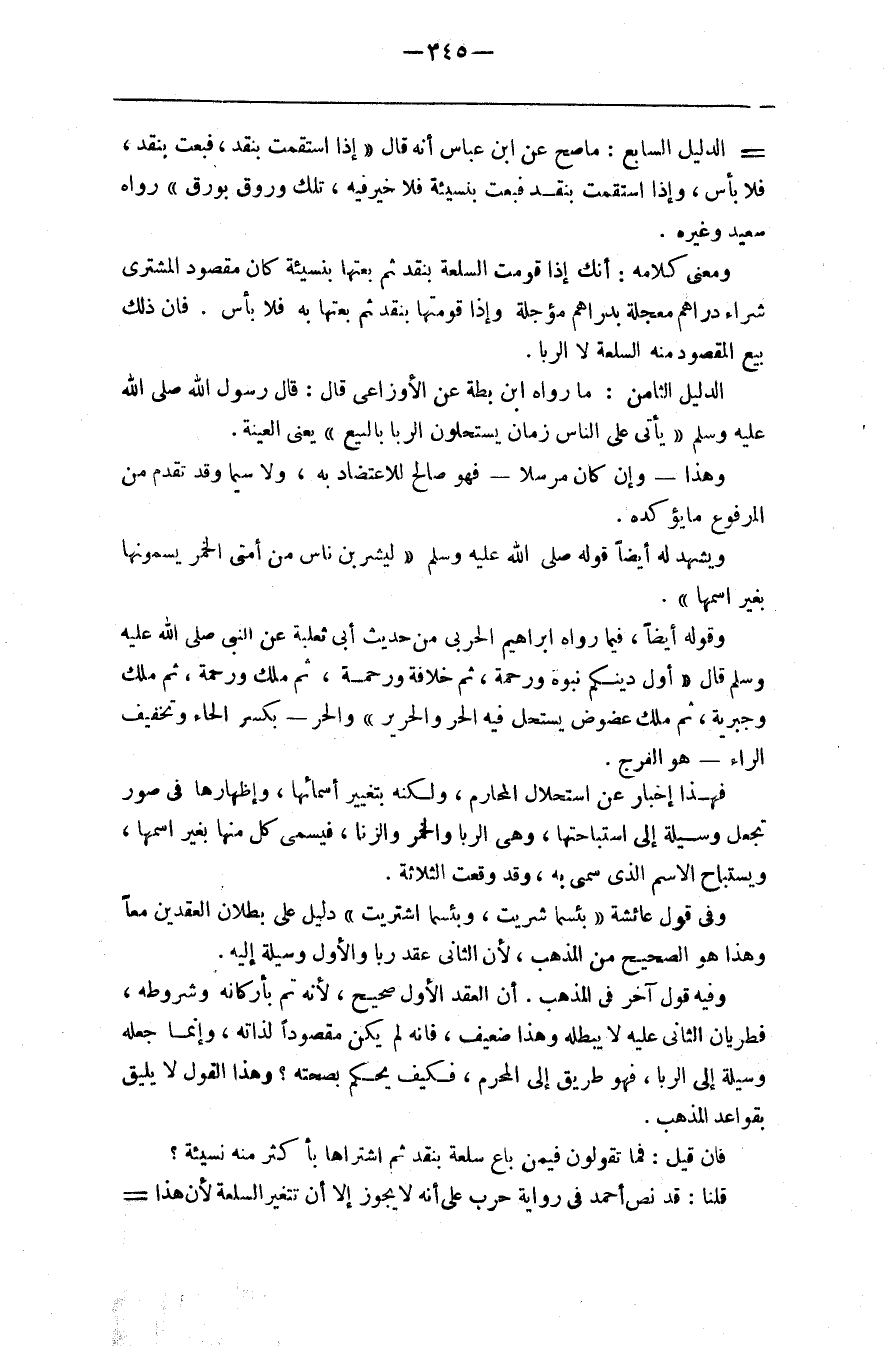 —٣٤٥—
= الدليل السابع : ماصح عن ابن عباس أنه قال « إذا استقمت بنقد ، فبعت بنقد ،
فلا بأس ، وإذا استقمت بنقـد فبعت بنسيئة فلا خيرفيه ، تلك وروق بورق » رواه
سعيد وغيره .
ومعنى كلامه : أنك إذا قومت السلعة بنقد ثم بعتها بنسيئة كان مقصود المشترى
شراء دراهم معجلة بدراهم مؤجلة وإذا قومتها بنقد ثم بعتها به فلا بأس . فان ذلك
بيع المقصود منه السلعة لا الربا .
الدليل الثامن : ما رواه ابن بطة عن الأوزاعى قال : قال رسول الله صلى الله
عليه وسلم « يأتى على الناس زمان يستحلون الربا بالبيع » يعنى العينة .
وهذا — وإن كان مرسلا — فهو صالح للاعتضاد به ، ولا سيما وقد تقدم من
المرفوع مايؤكده .
ويشهد له أيضاً قوله صلى الله عليه وسلم « ليشربن ناس من أمتى الخمر يسمونها
بغير اسمها » .
وقوله أيضاً ، فيما رواه ابراهيم الحربى من حديث أبى ثعلبة عن النبى صلى الله عليه
وسلم قال « أول دينـكم نبوة ورحمة ، ثم خلافة ورحمـة ، ثم ملك ورحمة ، ثم ملك
وجبرية ، ثم ملك عضوض يستحل فيه الحر والحرير » والحر — بكسر الحاء وتخفيف
الراء — هو الفرج .
فهـذا إخبار عن استحلال المحارم ، ولـكنه بتغيير أسمائها ، وإظهارها فى صور
تجعل وسـيلة إلى استباحتها ، وهى الربا والخمر والزنا ، فيسمى كل منها بغير اسمها ،
ويستباح الاسم الذى سمى به ، وقد وقعت الثلاثة .
وفى قول عائشة « بئسما شريت ، وبئسما اشتريت » دليل على بطلان العقدين معاً
وهذا هو الصحيح من المذهب ، لأن الثانى عقد ربا والأول وسيلة إليه .
وفيه قول آخر فى المذهب . أن العقد الأول صحيح ، لأنه تم بأركانه وشروطه ،
فطريان الثانى عليه لا يبطله وهذا ضعيف ، فانه لم يكن مقصوداً لذاته ، وإنمـا جعله
وسيلة إلى الربا ، فهو طريق إلى المحرم ، فـكيف يحـكم بصحته ؟ وهذا القول لا يليق
بقواعد المذهب .
فان قيل : فما تقولون فيمن باع سلعة بنقد ثم اشتراها بأكثر منه نسيئة ؟
قلنا : قد نص أحمد فى رواية حرب على أنه لا يجوز إلا أن تتغير السلعة لأن هذا =